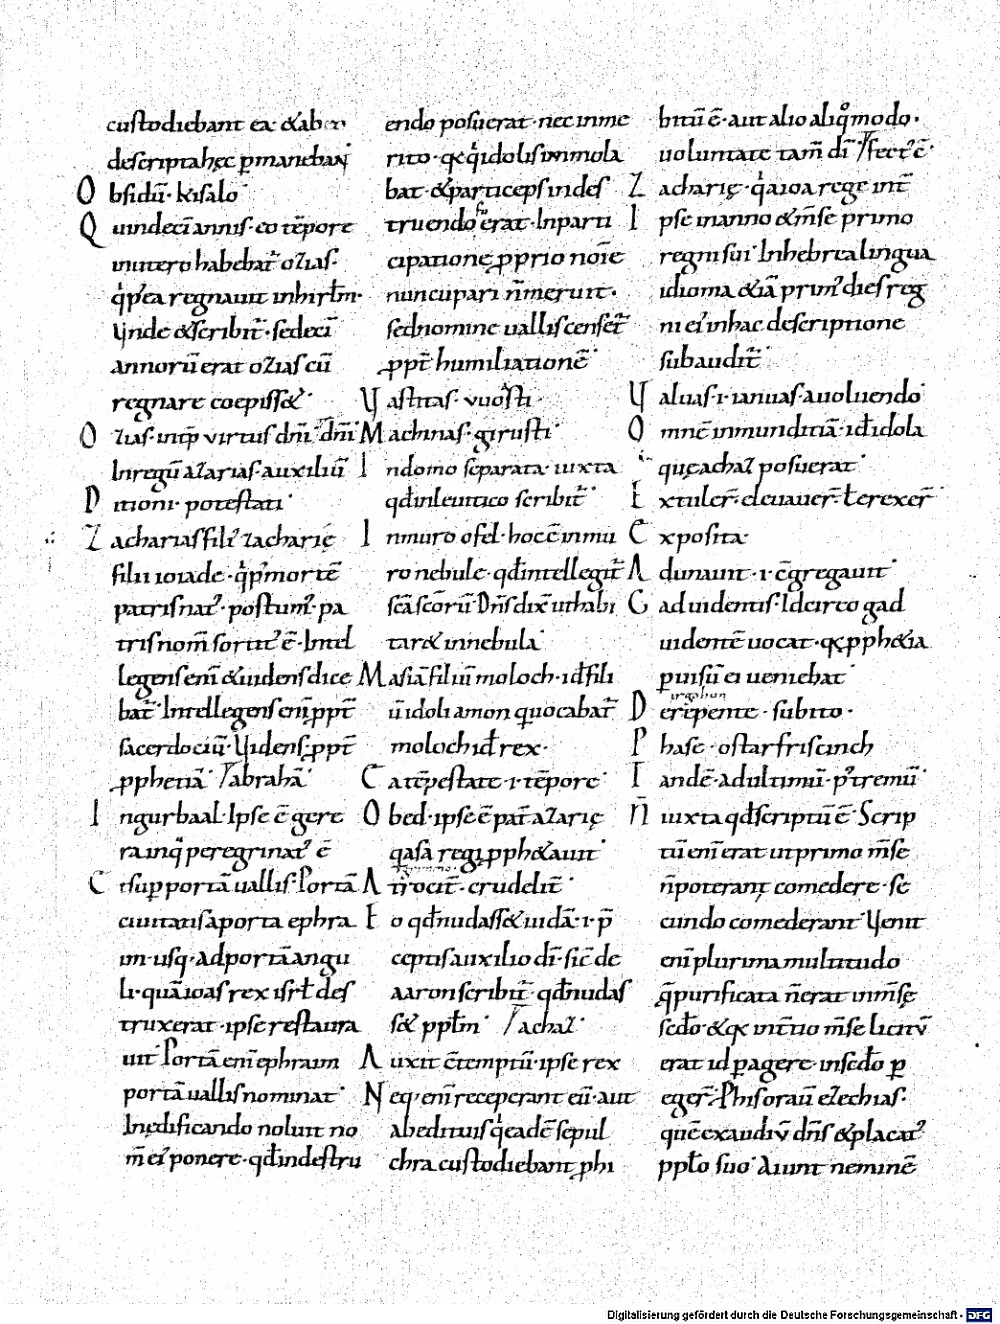 custodiebant ea· &ab
descripta hęc p̄manebant
Obsidiū· kisalo·
Quindecī annis· eo tēpore
inutero habebat̄ ozias·
q̇ p̓ea regnauit inhirłm·
Unde &scribit̄· sedecī
annorū erat ozias cū
regnare coepiss&·
Ozias· intp̄ virtus dn̄i·
Inregū azarias· auxiliū dn̄i
Ditioni· potestati·
Zacharias fili᾿ zacharię
filii ioiade· q̇ p᾿ mortē
patris nat᾿· postum᾿· pa
tris nom̄ sortit᾿ ē· Intel
legens enī &uidens dice
bat̄· Intellegens enī ꝓpt̄
sacerdociū· Uidens ꝓpt̄
ꝓph&iā· abrahā·
Ingurbaal· Ipse ē gere
ra inq̇ peregrinat᾿ ē
Et sup portā uallis· Portā
ciuitatis aporta ephra
im· usq· ad portā angu
li· quā ioas rex isrł des
truxerat· ipse restaura
uit· Portā enī ephraim
portā uallis nominat·
Inędificando noluit no
m̄ ei᾿ ponere· qd̄ indestru
endo posuerat· nec inme
rito· qꝫ q̇ idolis immola
bat· &particeps indes
truendo fu erat· Inparti
cipatione ꝓprio noīe
nuncupari n̄ meruit·
sed nomine uallis censet̄
ꝓpt̄ humiliationē·
Uastitas· vuosti·
Machinas· girusti·
In domo separata· iuxta
qd̄ inleuitico scribit̄·
In muro ofel· hoc ē inmu
ro nebule· qd̄ intellegit̄
sc̄a sc̄orū· Dn̄s dix̄ ut habi
tar& innebula·
Masiā filiū moloch· id̄ fili
ū idoli amon q̄ uocabat̄
moloch id̄ rex·
Ea tēpestate· i· tēpore·
Obed· ipse ē pat̄ azarię
q asa regi ꝓph&auit·
Atrocit̄· crudelit̄·
Eo qd̄ nudass& iudā· i· p̄
ceptis auxilio dī· sic̄ de
aaron scribit̄· qd̄ nudas
s& ppłm· achaz·
Auxit c̄temptū· ipse rex
Neq· enī receperant eū· aut
abedituis q̇ eadē sepul
chra custodiebant ꝓhi
bitū ē· aut alio aliq̊modo·
uoluntate tam̄ dī īfect᾿ ē·
Zacharię· q̇ aioa rege int̄
Ipse in anno &m̄se primo
regni sui· Inhebrea lingua
idioma &iā prim᾿ dies reg
ni ei᾿ inhac descriptione
subaudit̄·
Ualuas· i· ianuas· auoluendo·
Omnē inmunditiā· id̄ idola
quę achaz posuerat·
Extuler̄· eleuauer̄· ł erexer̄·
Exposita·
Adunauit· i· c̄gregauit·
Gad uidentis· Idcirco gad
uidentē uocat· qꝫ ꝓph&ia
p uisū ei ueniebat·
De repente· subito·
Phase· ostarfriscinch
Tandē· ad ultimū· p᾿tremū·
N̄ iuxta qd̄ scriptū ē· Scrip
tū enī erat ut primo m̄se
n̄ poterant comedere· se
cundo comederant· Uenit
enī plurima multitudo
q̄ purificata n̄ erat inm̄sę
sedo· &qꝫ int̄tio m̄se licitv̄
erat id p̄agere· insed̄o p
eger̄· P̄his orauit ezechias·
quē exaudiv̄ dn̄s &placat᾿
ppło suo· Aiunt neminē
Digitalisierung gefördert durch die Deutsche Forschungsgemeinschaft · DFG